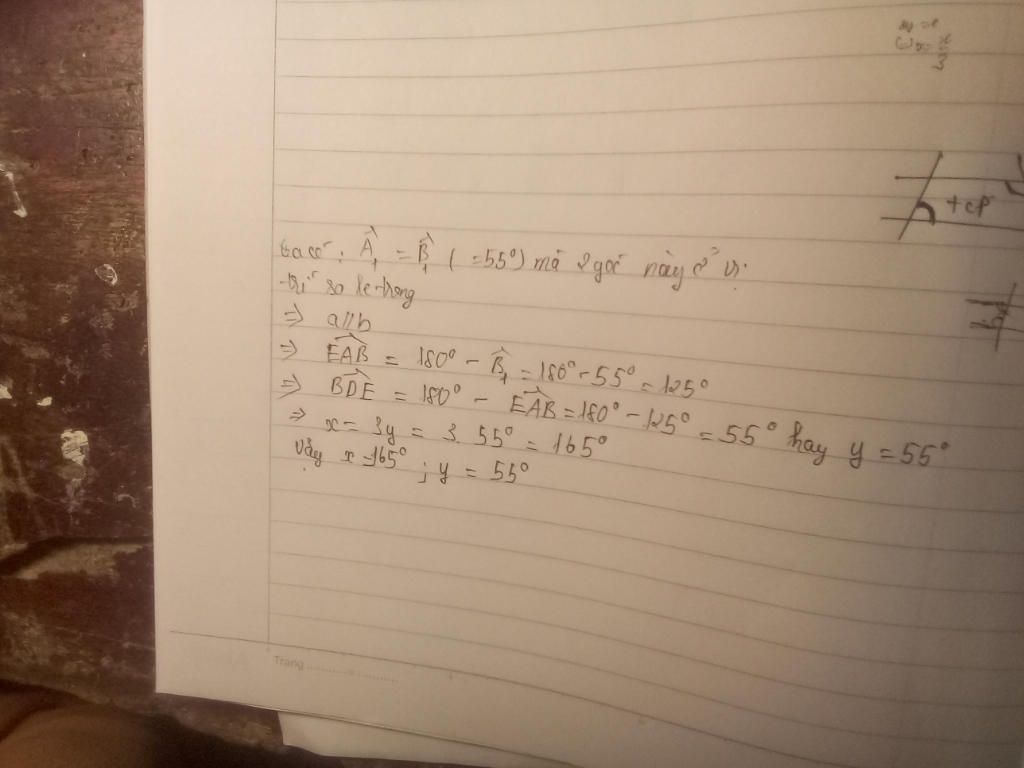 ta có: Â₁ = B̂₁ ( =55°) mà 2 góc này ở vị
trí so le trong
=> a//b
=> EAB = 180° - B̂₁ = 180° - 55° = 125°
=> BDE = 180° - EAB = 180° - 125° = 55° hay y = 55°
=> x = 3y = 3. 55° = 165°
vậy x = 165° ; y = 55°
Trang
+cp